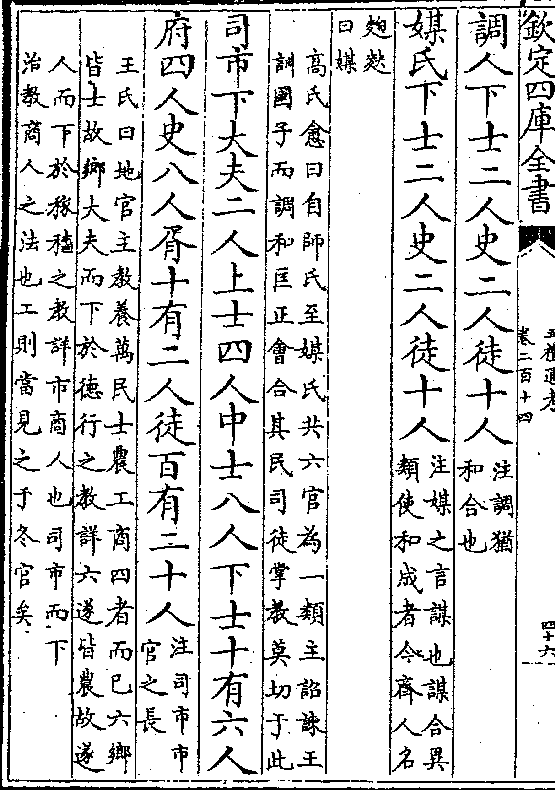 欽定四庫全書
五禮通考
卷二百十四
四十六
調人下士二人史二人徒十人
注調猶
和合也
媒氏下士二人史二人徒十人
注媒之言謀也謀合異
類使和成者今齊人名
麴䴷
曰媒
高氏愈曰自師氏至媒氏共六官為一類主詔諫王
訓國子而調和匡正會合其民司徒掌教莫切于此
司市下大夫二人上士四人中士八人下士十有六人
府四人史八人胥十有二人徒百有二十人
注司市市
官之長
王氏曰地官主教養萬民士農工商四者而已六鄉
皆士故鄉大夫而下於徳行之教詳六遂皆農故遂
人而下於稼穡之教詳市商人也司市而下
治教商人之法也工則當見之于冬官矣